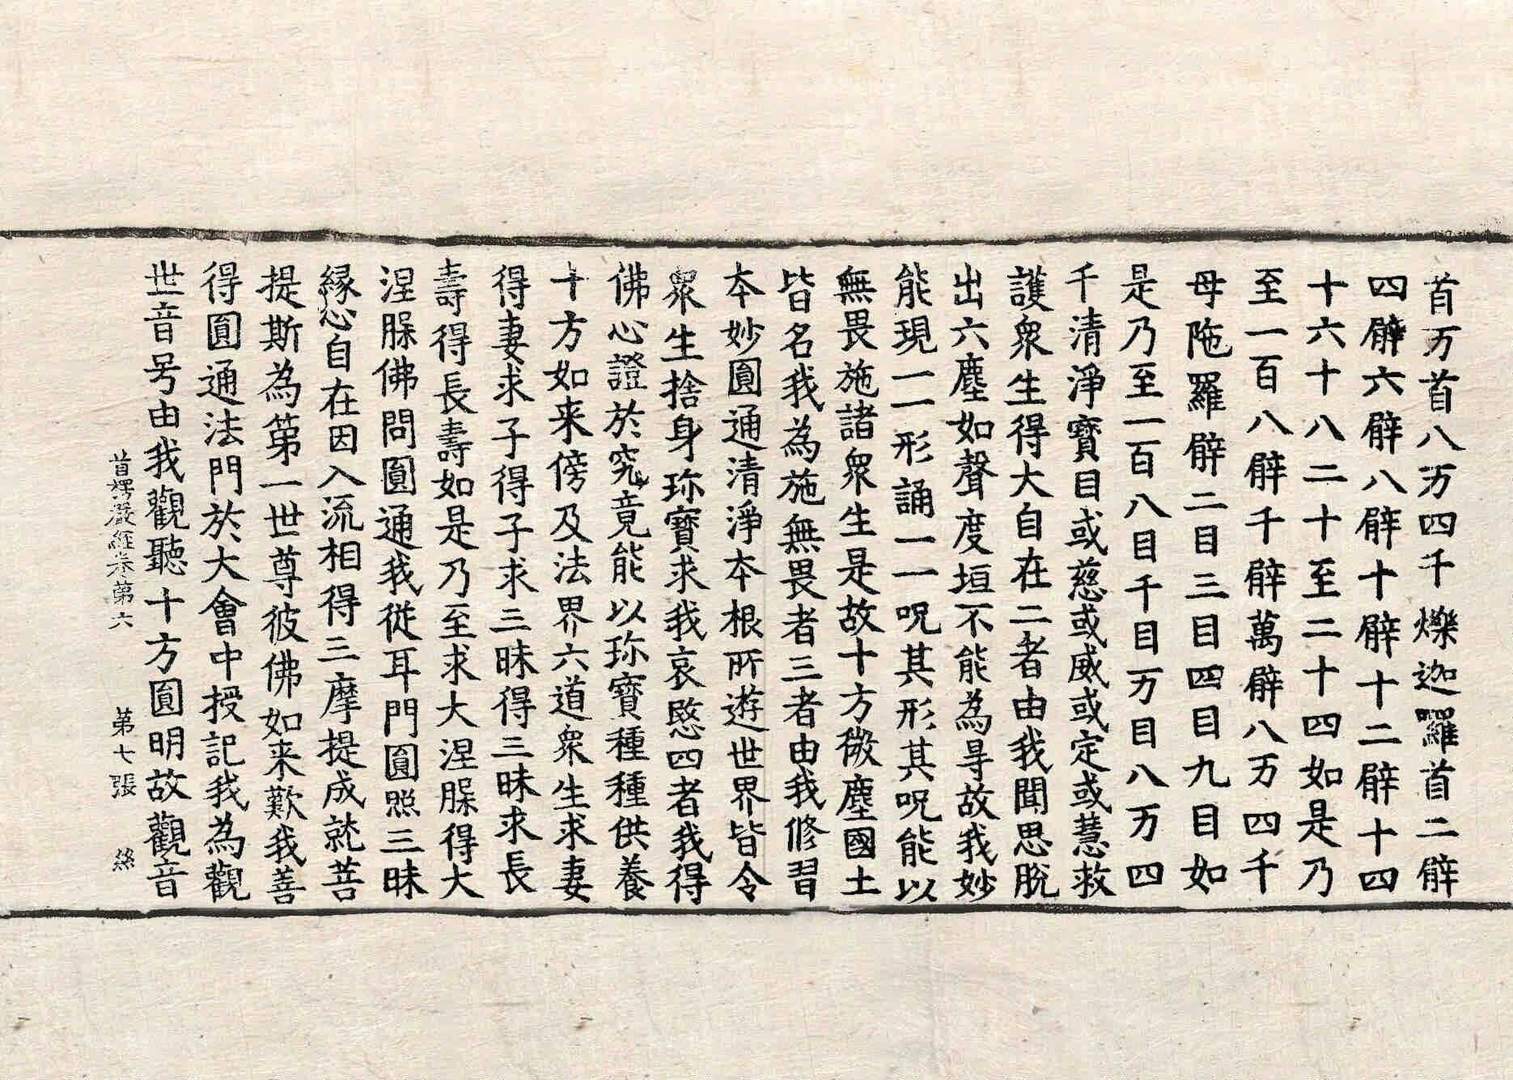 首万首八万四千爍迦羅首二臂
四臂六臂八臂十臂十二臂十四
十六十八二十至二十四如是乃
至一百八臂千臂萬臂八万四千
母陁羅臂二目三目四目九目如
是乃至一百八目千目万目八万四
千清淨寶目或慈或威或定或慧救
護衆生得大自在二者由我聞思脫
出六塵如聲度垣不能為㝵故我妙
能現一一形誦一一呪其形其呪能以
無畏施諸衆生是故十方微塵國土
皆名我為施無畏者三者由我修習
夲妙圓通清淨夲根所遊世界皆令
衆生捨身珎寶求我哀愍四者我得
佛心證於究竟能以珎寶種種供養
十方如来傍及法界六道衆生求妻
得妻求子得子求三昧得三昧求長
壽得長壽如是乃至求大涅槃得大
涅槃佛問圓通我從耳門圓照三昧
緣心自在因入流相得三摩提成就菩
提斯為第一世尊彼佛如来歎我善
得圓通法門於大會中授記我為觀
世音号由我觀聽十方圓明故觀音
首楞嚴經卷第六 第七張 絲